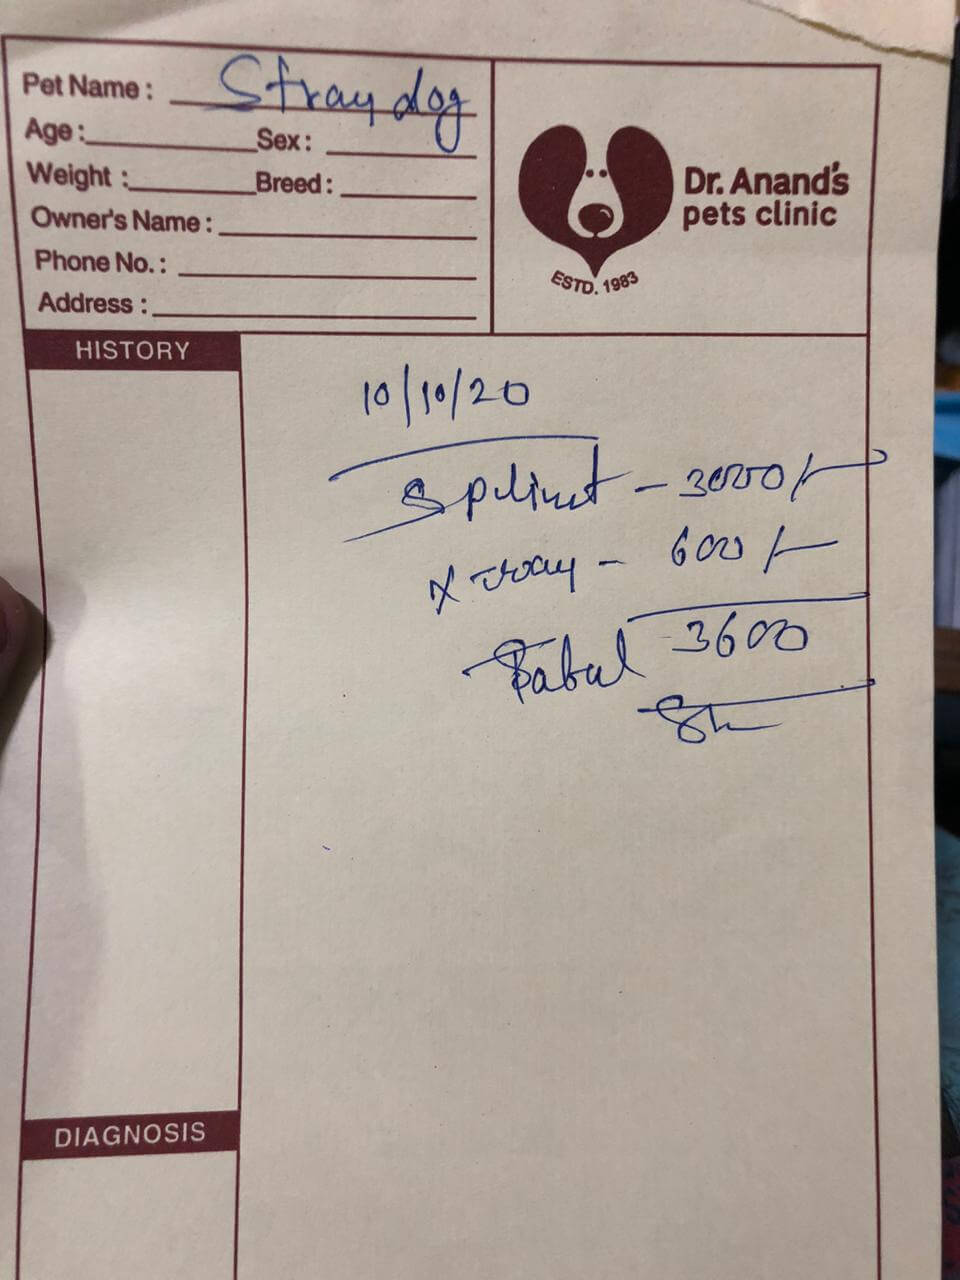 Pet Name : Stray dog
Age : Sex :
Weight : Breed :
Owner's Name :
Phone No. :
Address :
Dr. Anand's
pets clinic
ESTD. 1983
HISTORY
10/10/20
Splint - 3000/-
X-ray - 600/-
Total 3600
DIAGNOSIS